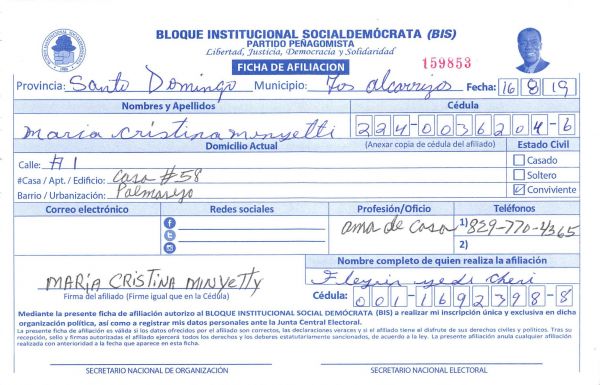 BLOQUE INSTITUCIONAL SOCIALDEMÓCRATA (BIS)
PARTIDO PEÑAGOMISTA
Libertad, Justicia, Democracia y Solidaridad
FICHA DE AFILIACION
159853
Provincia: Santo Domingo Municipio: Los alcarrizos Fecha: 16 8 19
Nombres y Apellidos Cédula
Maria Cristina Minyetti 224-0036204-6
Domicilio Actual (Anexar copia de cédula del afiliado) Estado Civil
Calle: #1 Casado
#Casa / Apt. / Edificio: Casa #58 Soltero
Barrio / Urbanización: Palmarejo Conviviente
Correo electrónico Redes sociales Profesión/Oficio Teléfonos
ama de casa 1) 829-770-4365
2)
Nombre completo de quien realiza la afiliación
MARÍA CRISTINA MINYETTY
Firma del afiliado (Firme igual que en la Cédula) Cédula: 001-1692398-8
Mediante la presente ficha de afiliación autorizo al BLOQUE INSTITUCIONAL SOCIAL DEMÓCRATA (BIS) a realizar mi inscripción única y exclusiva en dicha
organización política, así como a registrar mis datos personales ante la Junta Central Electoral.
La presente ficha de afiliación es válida si los datos ofrecidos por el afiliado son correctos, las declaraciones veraces y si el afiliado tiene el disfrute de sus derechos civiles y políticos. Tras su
recepción, sello y firmas autorizadas el afiliado ejercerá todos los derechos y los deberes estatutariamente sancionados, de acuerdo a la ley. La presente afiliación anula cualquier afiliación
realizada con anterioridad a la fecha que aparece en esta ficha.
SECRETARIO NACIONAL DE ORGANIZACIÓN SECRETARIO NACIONAL ELECTORAL